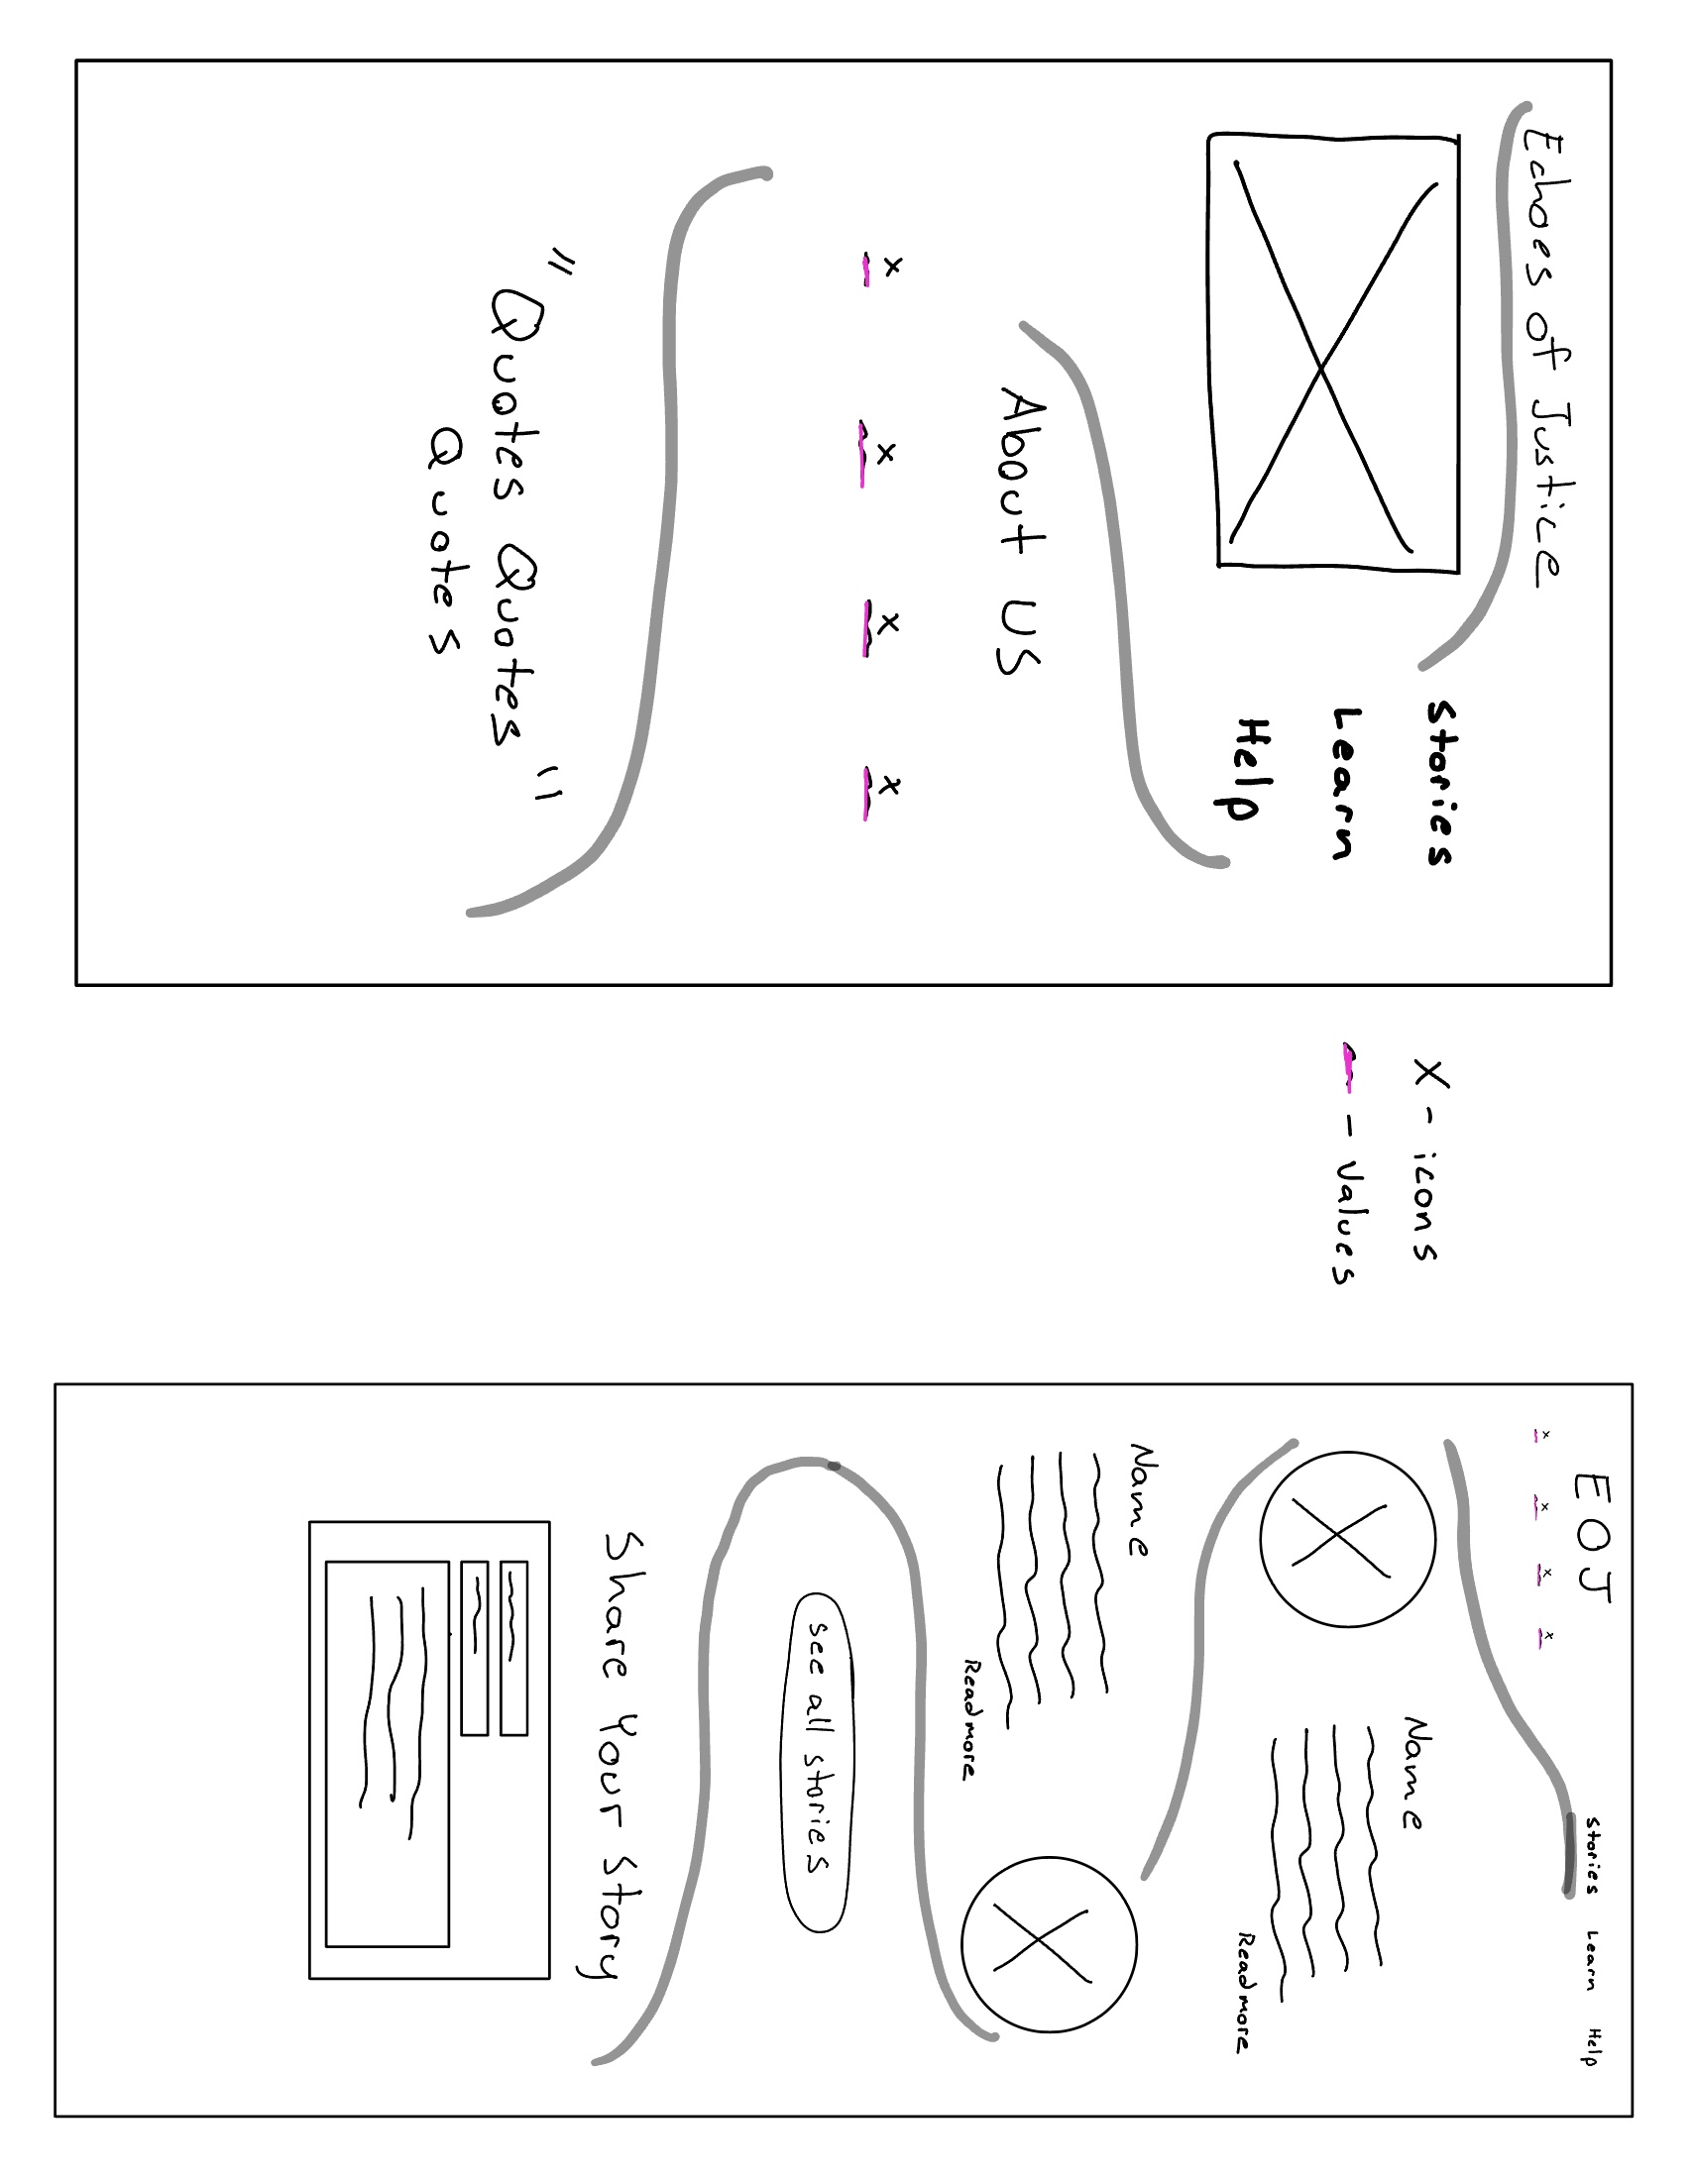 Echoes of Justice
Stories
Learn
Help
About US
x x x x
"Quotes Quotes"
Quotes
X - icons
- Values
EOJ
Stories Learn Help
x x x x
Name
Read more
Name
Read more
see all stories
Share Your Story